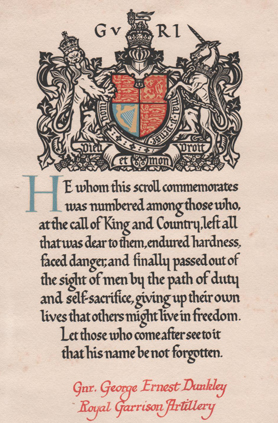 G V R I
Dieu Droit
et mon
HE whom this scroll commemorates
was numbered among those who,
at the call of King and Country, left all
that was dear to them, endured hardness,
faced danger, and finally passed out of
the sight of men by the path of duty
and self-sacrifice, giving up their own
lives that others might live in freedom.
Let those who come after see to it
that his name be not forgotten.
Gnr. George Ernest Dunkley
Royal Garrison Artillery